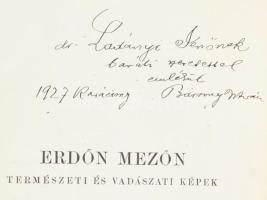 dr. Ladányi Jenőnek
baráti szeretettel
emlékül
1927 Karácsony Bársony István
ERDŐN MEZŐN
TERMÉSZETI ÉS VADÁSZATI KÉPEK